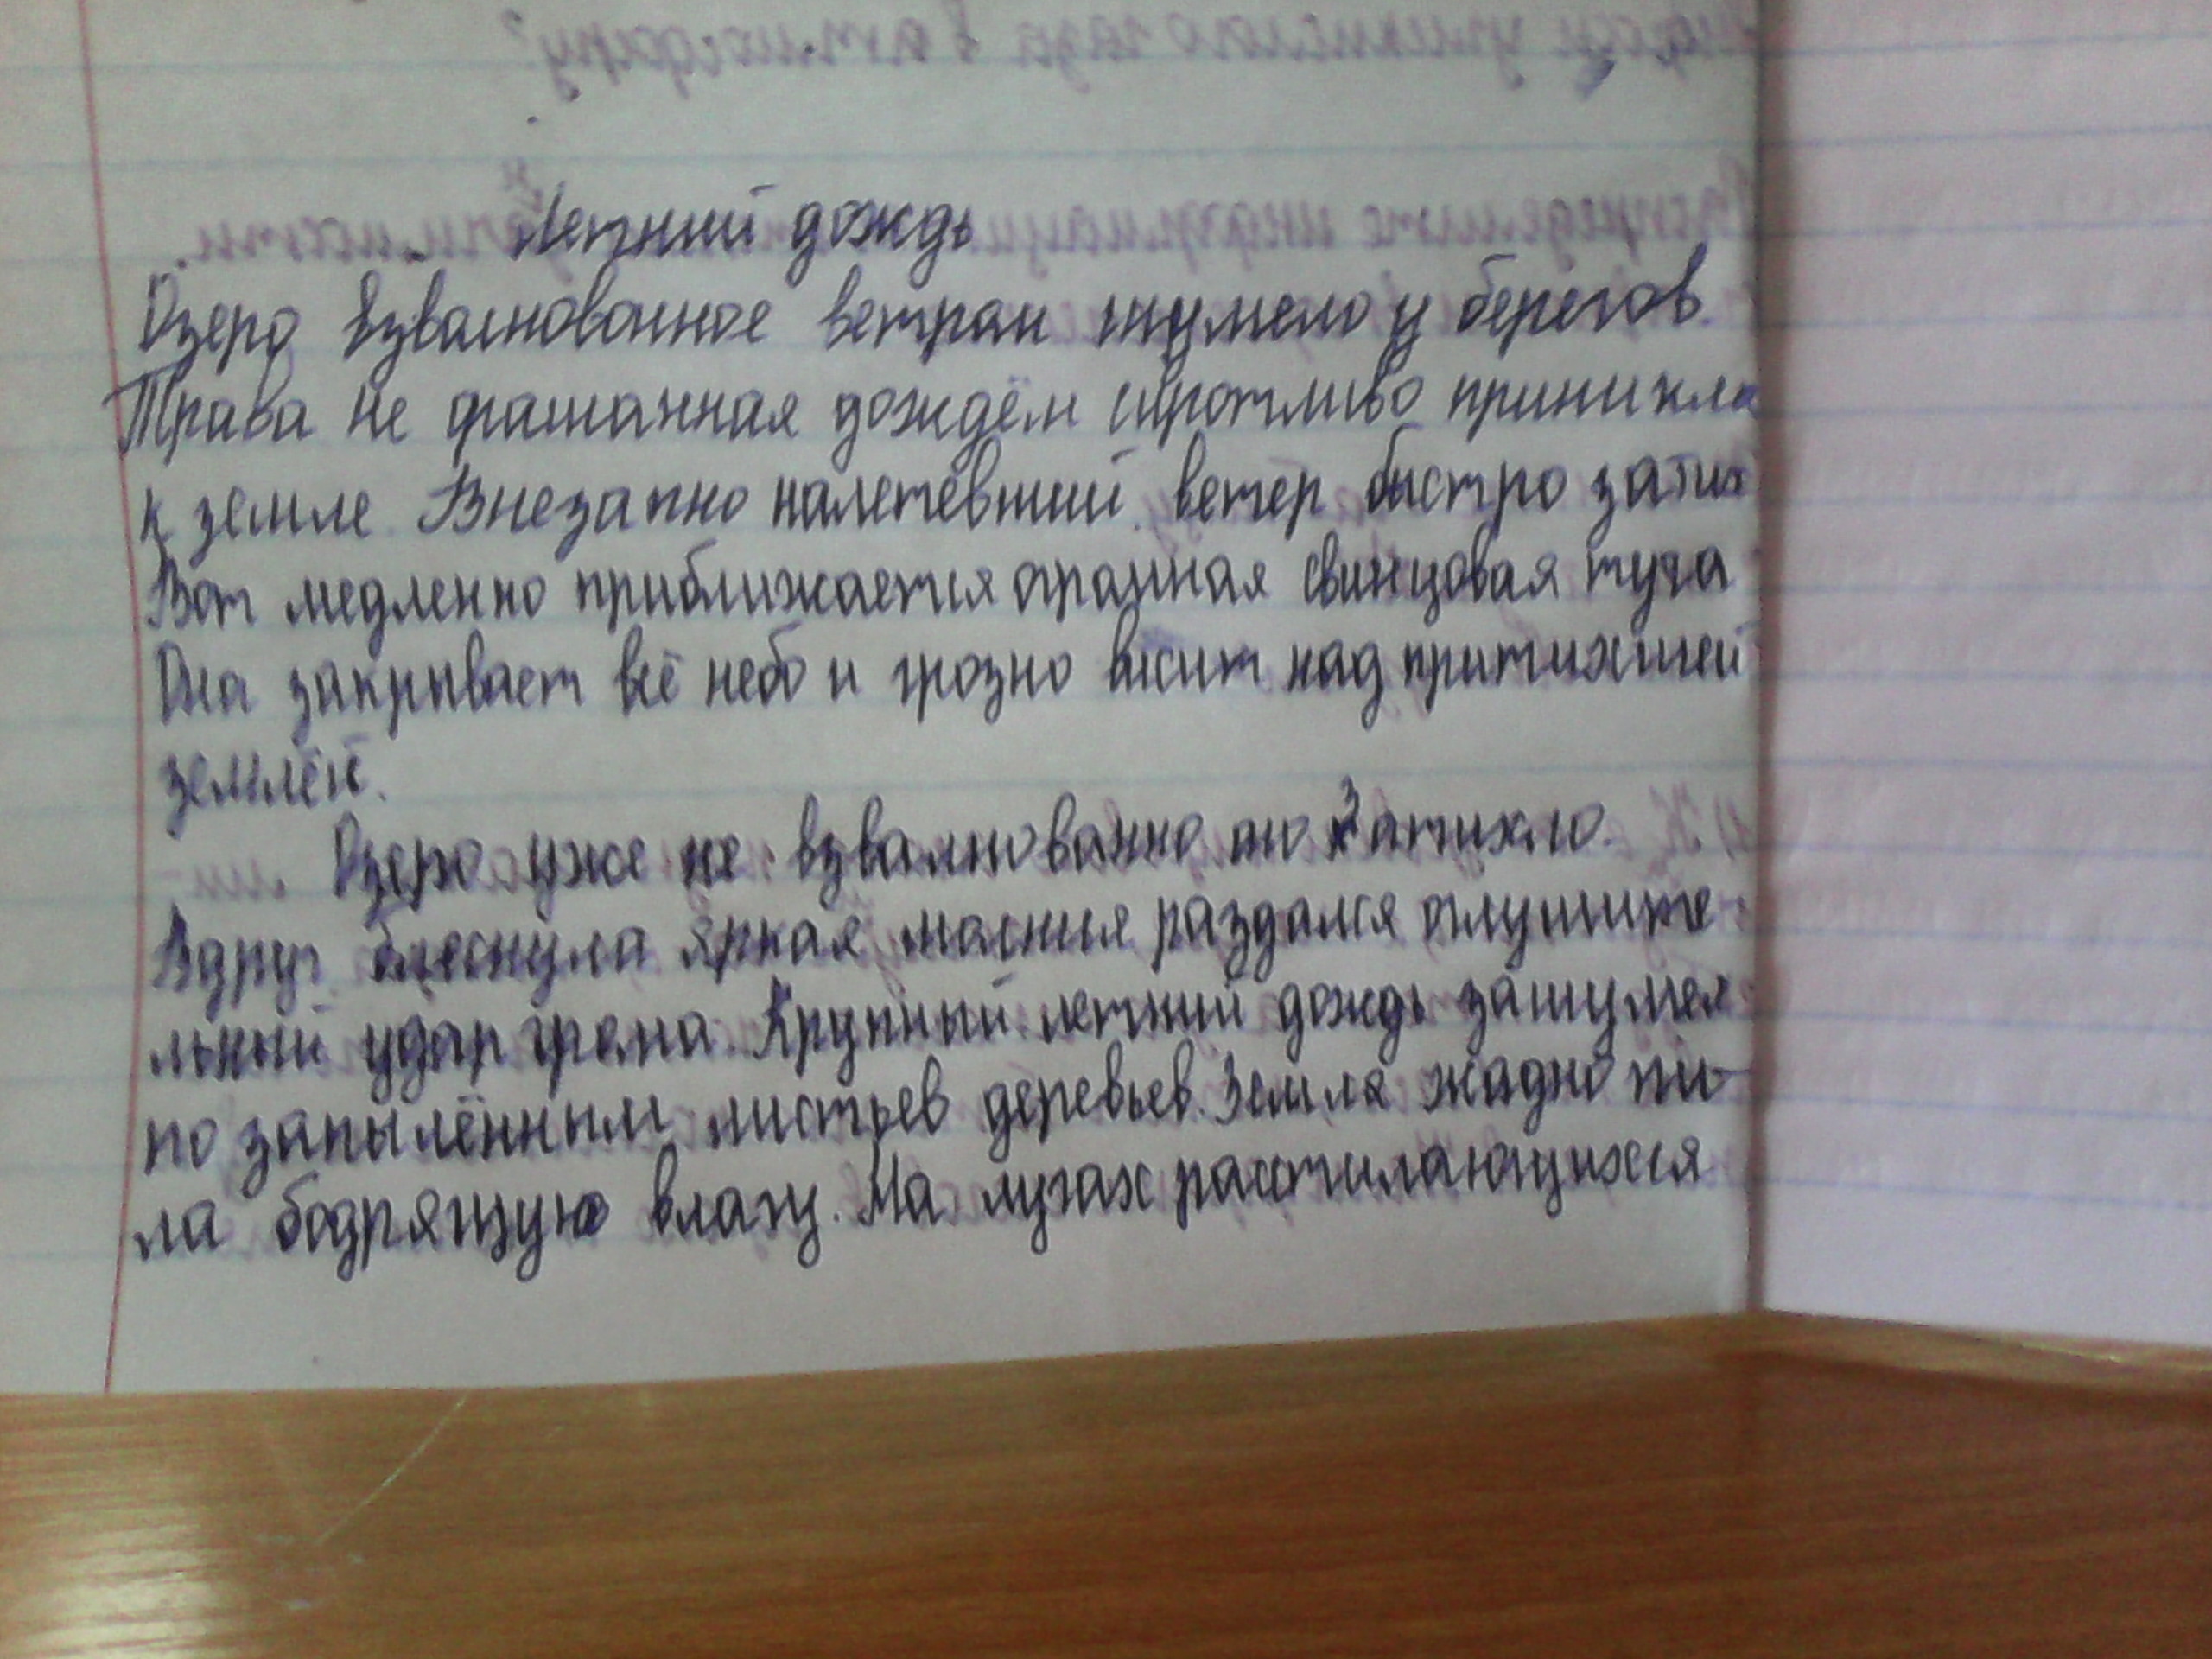 Летний дождь
Озеро взволнованное ветром шумело у берегов.
Трава не орошанная дождём сиротливо приникла
к земле. Внезапно налетевший ветер быстро затих
Вот медленно приближается огромная свинцовая туча
Она закрывает всё небо и грозно висит над притихшей
землёй.
Озеро уже не взволнованно оно затихло.
Вдруг блеснула яркая молния раздался оглушите-
льный удар грома. Крупный летний дождь зашумел
по запылённым листьев деревьев. Земля жадно пи-
ла бодрящую влагу. На лугах расстилающихся